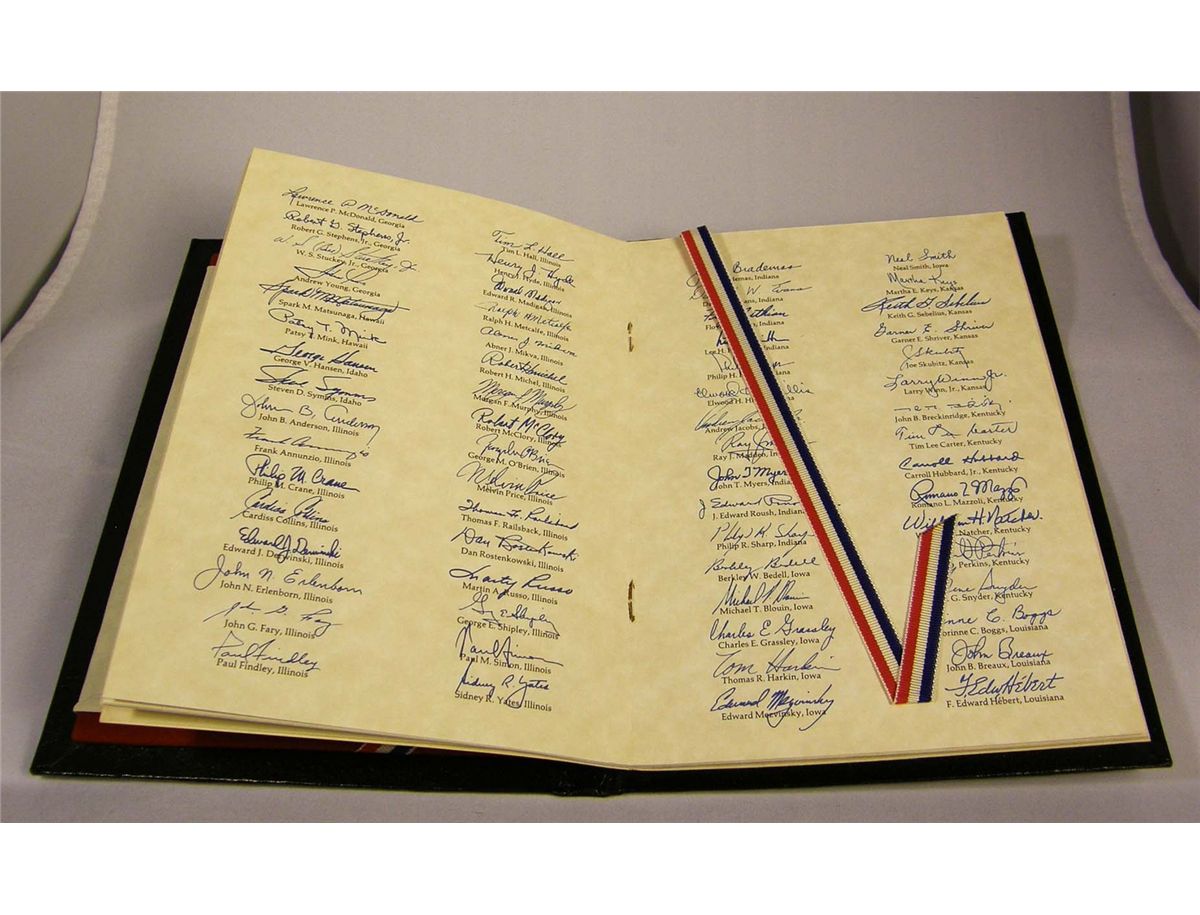 Lawrence P McDonald
Lawrence P. McDonald, Georgia
Robert G. Stephens, Jr.
Robert G. Stephens, Jr., Georgia
W. S. (Bill) Stuckey, Jr.
W. S. Stuckey, Jr., Georgia
Andrew Young, Georgia
Spark M Matsunaga
Spark M. Matsunaga, Hawaii
Patsy T. Mink
Patsy T. Mink, Hawaii
George Hansen
George V. Hansen, Idaho
Steve Symms
Steven D. Symms, Idaho
John B. Anderson
John B. Anderson, Illinois
Frank Annunzio
Frank Annunzio, Illinois
Philip M. Crane
Philip M. Crane, Illinois
Cardiss Collins
Cardiss Collins, Illinois
Edward J. Derwinski
Edward J. Derwinski, Illinois
John N. Erlenborn
John N. Erlenborn, Illinois
John G. Fary
John G. Fary, Illinois
Paul Findley
Paul Findley, Illinois
Tim L. Hall
Tim L. Hall, Illinois
Henry J. Hyde
Henry J. Hyde, Illinois
Edward R. Madigan, Illinois
Ralph H Metcalfe
Ralph H. Metcalfe, Illinois
Abner J. Mikva
Abner J. Mikva, Illinois
Robert Michel
Robert H. Michel, Illinois
Morgan F. Murphy
Morgan F. Murphy, Illinois
Robert McClory
Robert McClory, Illinois
George M. O'Brien, Illinois
Melvin Price
Melvin Price, Illinois
Thomas F. Railsback
Thomas F. Railsback, Illinois
Dan Rostenkowski
Dan Rostenkowski, Illinois
Marty Russo
Martin A. Russo, Illinois
Geo E Shipley
George E. Shipley, Illinois
Paul Simon
Paul M. Simon, Illinois
Sidney R. Yates
Sidney R. Yates, Illinois
Brademas
emas, Indiana
W. Evans
Indiana
Indiana
Lee H.
Philip H.
Elwood H.
Andrew Jacobs,
Ray J.
Ray J. Madden, India
John T Myers
John T. Myers, Indiana
J Edward Roush
J. Edward Roush, Indiana
Philip R Sharp
Philip R. Sharp, Indiana
Berkley Bedell
Berkley W. Bedell, Iowa
Michael T. Blouin
Michael T. Blouin, Iowa
Charles E Grassley
Charles E. Grassley, Iowa
Tom Harkin
Thomas R. Harkin, Iowa
Edward Mezvinsky
Edward Mezvinsky, Iowa
Neal Smith
Neal Smith, Iowa
Martha Keys
Martha E. Keys, Kansas
Keith G Sebelius
Keith G. Sebelius, Kansas
Garner E. Shriver
Garner E. Shriver, Kansas
J Skubitz
Joe Skubitz, Kansas
Larry Winn Jr.
Larry Winn, Jr., Kansas
John B. Breckinridge, Kentucky
Tim Lee Carter
Tim Lee Carter, Kentucky
Carroll Hubbard
Carroll Hubbard, Jr., Kentucky
Romano L Mazzoli
Romano L. Mazzoli, Kentucky
William H Natcher.
Natcher, Kentucky
Perkins
Perkins, Kentucky
Gene Snyder
G. Snyder, Kentucky
nne C. Boggs
orinne C. Boggs, Louisiana
John Breaux
John B. Breaux, Louisiana
F Edw Hébert
F. Edward Hébert, Louisiana